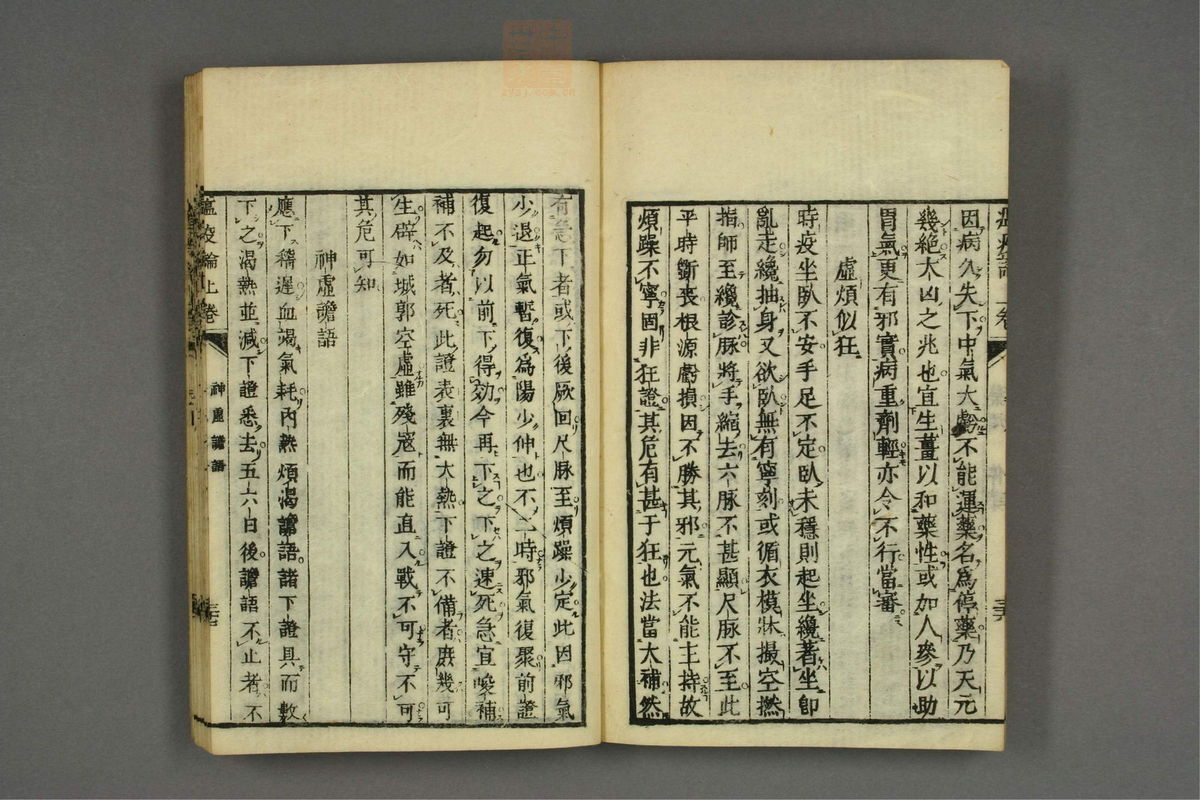 因病久失下中氣大虧不能運藥名爲停藥乃天元
幾絕大凶之兆也宜生薑以和藥性或加人參以助
胃氣更有邪實病重劑輕亦令不行當審
虛煩似狂
時疫坐臥不安手足不定臥未穩則起坐纔著坐卽
亂走纔抽身又欲臥無有寧刻或循衣模牀撮空撚
指師至纔診脉將手縮去六脉不甚顯尺脉不至此
平時斵喪根源虧損因不勝其邪元氣不能主持故
煩躁不寧固非狂證其危有甚于狂也法當大補然
有急下者或下後厥回尺脉至煩躁少定此因邪氣
少退正氣暫復爲陽少伸也不二時邪氣復聚前證
復起勿以前下得効今再下之下之速死急宜唆補
補不及者死此證表裏無大熱下證不備者庶幾可
生辟如城郭空虛雖殘寇而能直入戰不可守不可
其危可知
神虛譫語
應下稽遲血竭氣耗內熱煩渴譫語諸下證具而數
下之渴熱並減下證悉去五六日後譫語不止者不
瘟疫論上卷
神虛譫語
三七